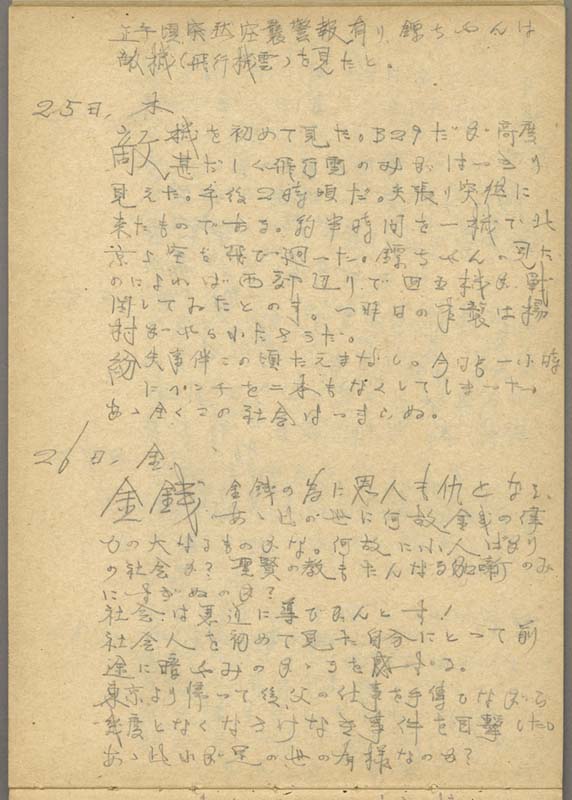 正午頃突然空襲警報有り、鐐ちやんは
敵機(飛行機雲)を見たと。
25日、木
敵機を初めて見た。B29だが高度
甚だしく飛行雲のみがはつきり
見えた。午後2時頃だ。矢張り突然に
来たものである。約半時間を一機で北
京上空を飛び廻つた。ちやんの見た
のによれば西郊辺りで四五機が戦
闘してゐたとの事。一昨日の来襲は楊
村がやられたさうだ。
紛失事件この頃たえまなし。今日も一小時
にペンチを二本もなくしてしまつた。
あゝ全くこの社会はつまらぬ。
26日、金
金銭 金銭の為に恩人も仇となる、
あゝ此の世に何故金銭の偉
力の大なるものかな。何故に小人ばかり
の社会か?聖賢の教もたんなるのみ
にすぎぬのか?
社会は悪道に導びかんとす!
社会人を初めて見た自分にとつて前
途に暗やみのかゝるを感ずる。
東京より帰つて後、父の仕事を手傳ひながら
幾度となくなさけなき事件を目撃した。
あゝ此れが此の世の有様なのか?